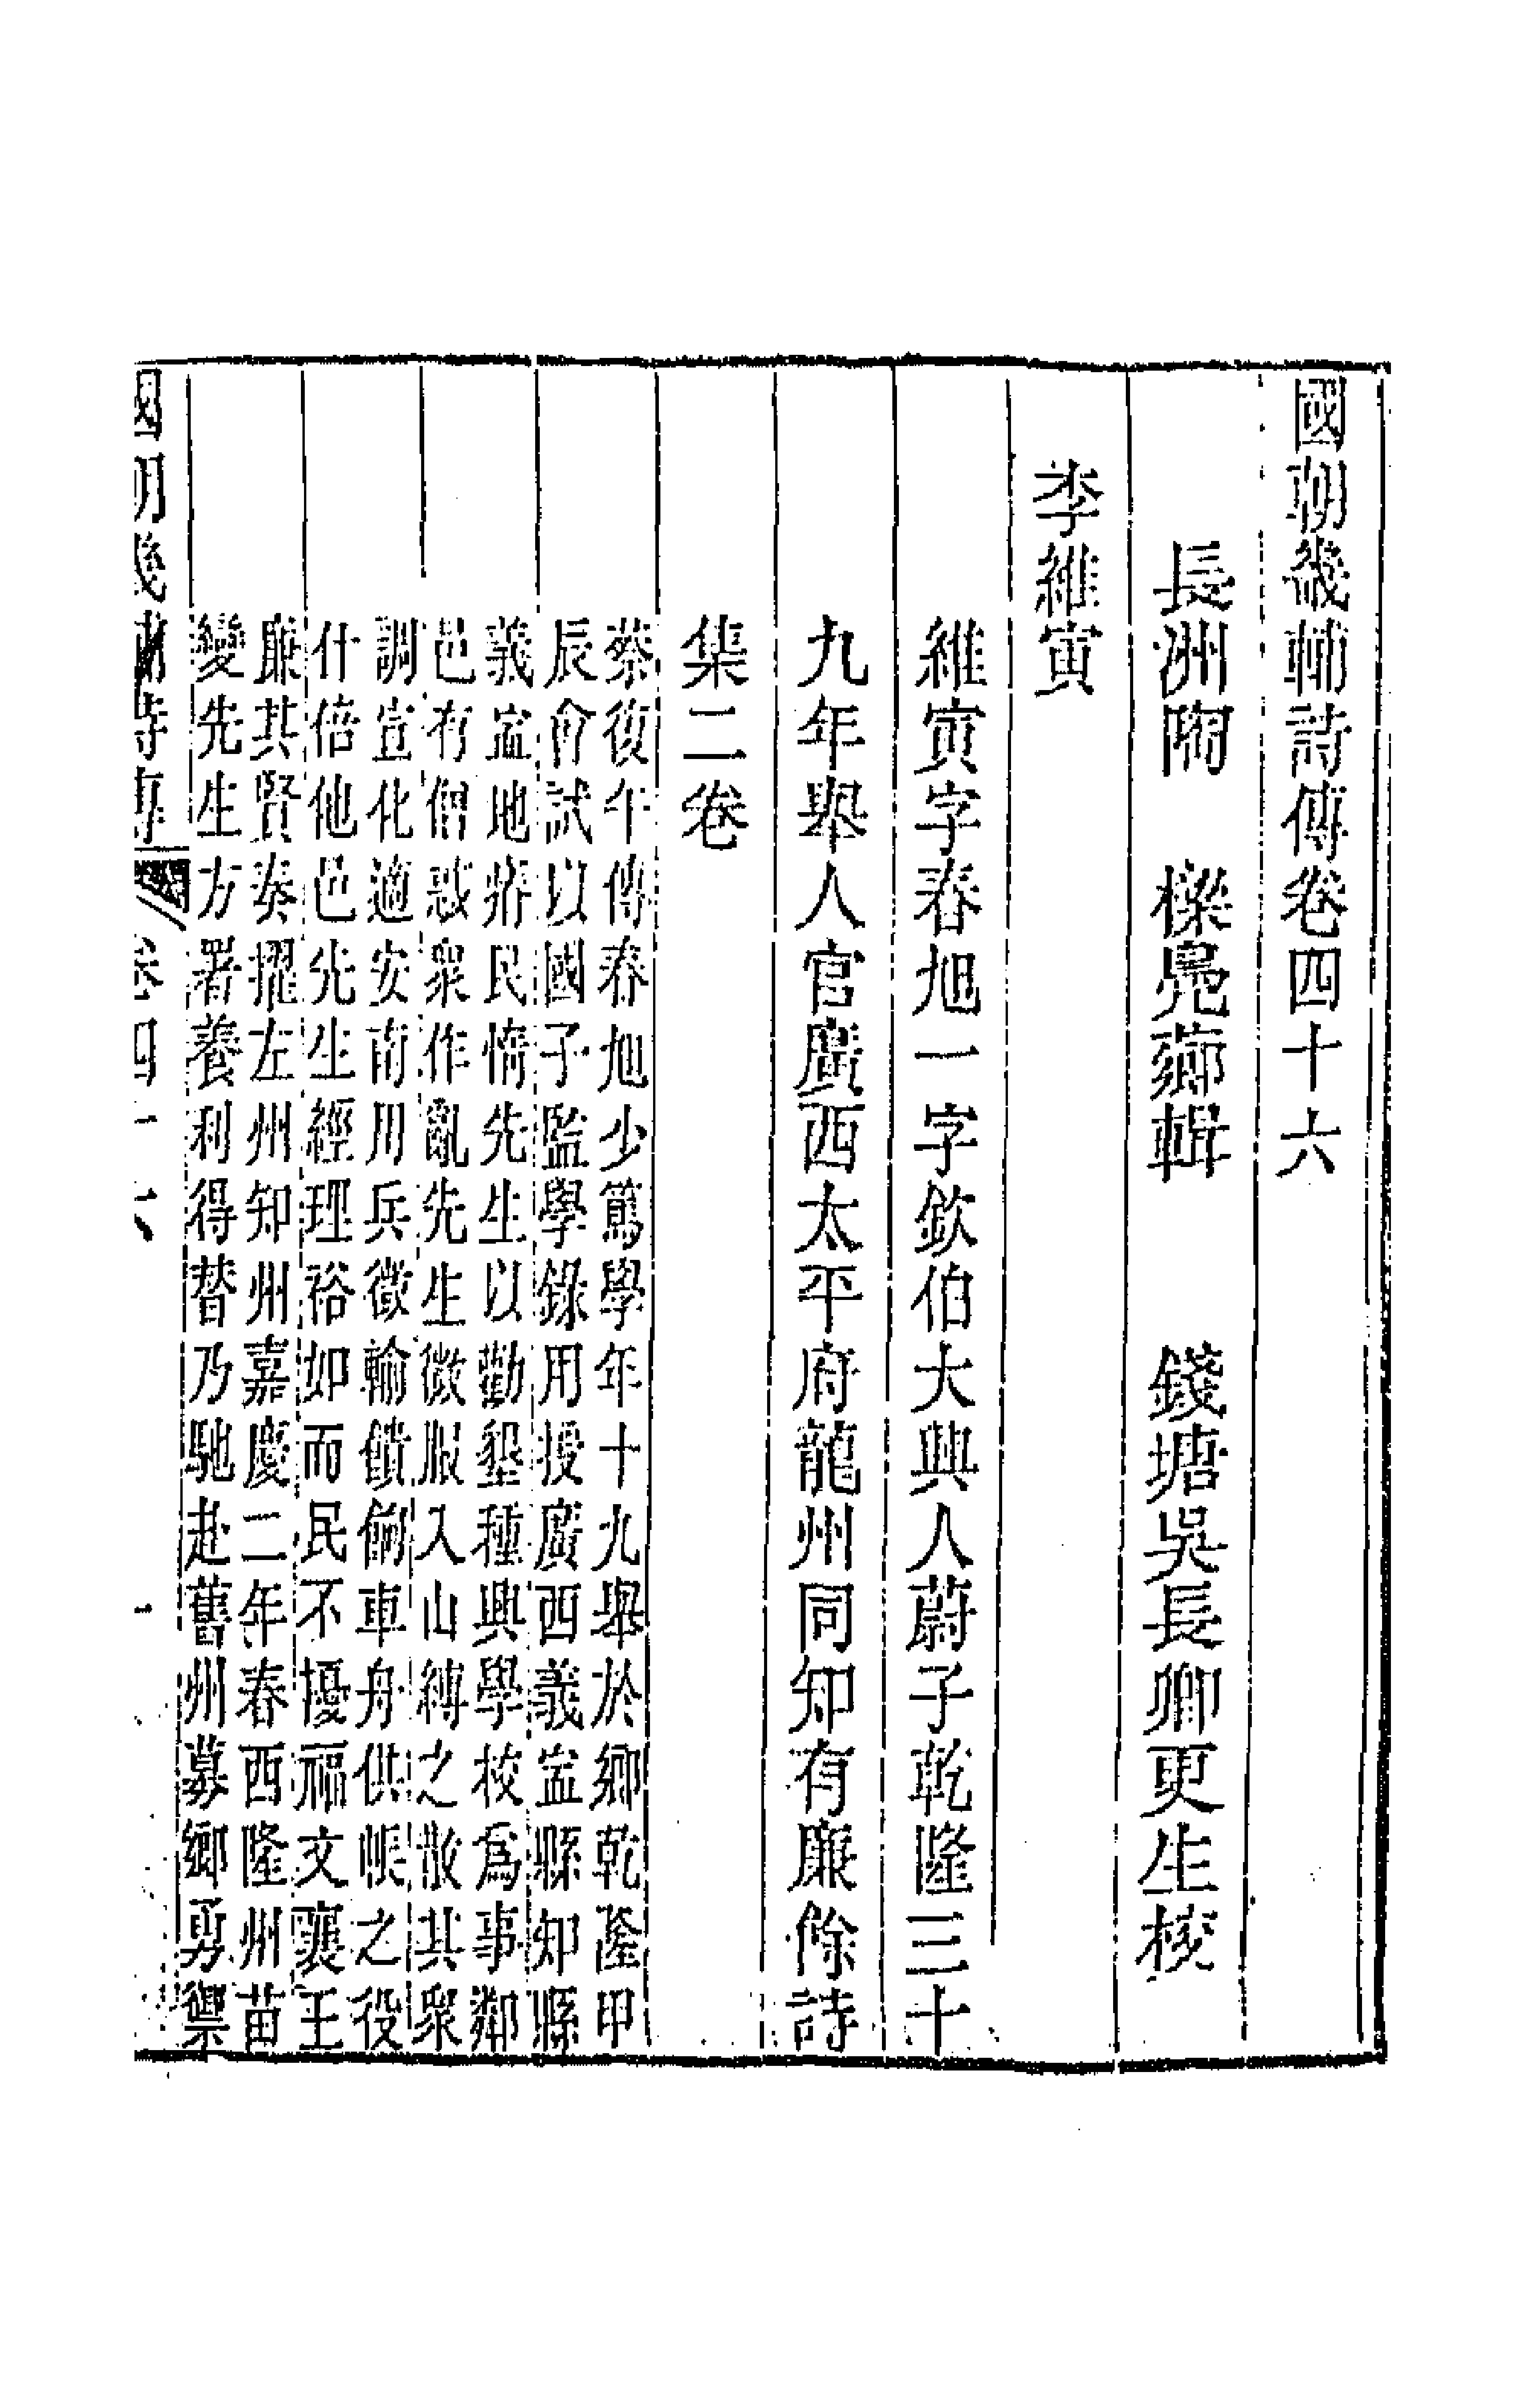 國朝畿輔詩傳卷四十六
長洲陶　樑鳧薌輯　錢塘吳長卿更生校
李維寅
維寅字春旭一字欽伯大興人蔚子乾隆三十
九年舉人官廣西太平府龍州同知有廉餘詩
集二卷
蔡復午傳春旭少篤學年十九舉於鄉乾隆甲
辰會試以國子監學錄用授廣西義寍縣知縣
義寍地瘠民惰先生以勸墾種興學校爲事鄰
邑有僧惑衆作亂先生微服入山縛之散其衆
調宣化適安南用兵徵輸饋餉車舟供帳之役
什倍他邑先生經理裕如而民不擾福文襄王
廉其賢奏擢左州知州嘉慶二年春西隆州苗
變先生方署養利得替乃馳赴舊州募鄉勇禦
國朝畿輔詩專　卷四十六　一